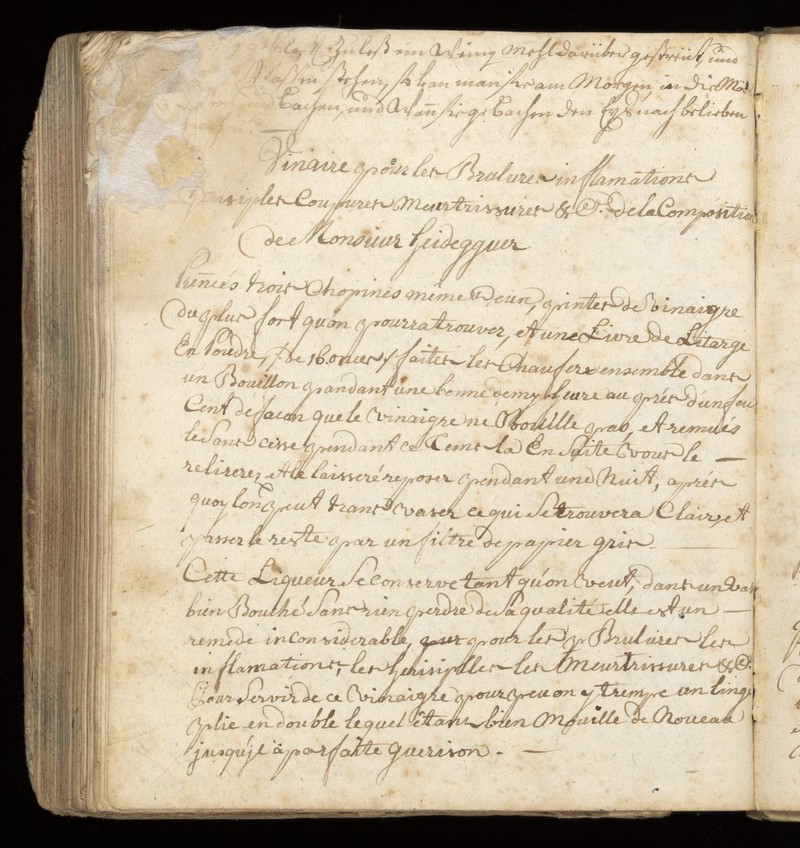 Zuletzt ein Wenig Mehl darüber gestreüt, und
stehen, so kan man sie am Morgen in die
bachen, und Wan sie gebachen den nach belieben
Vinaire pour les Brulures inflamations
Coupures Meurtrissures &c. de la Composition
de Monsieur Heidegguer
Prennés trois Chopines même deux pintes de Vinaigre
du plus fort quon pourra trouver, et une Livre de Litarge
En Poudre, /: de 16. onces :/ faites les Chaufere ensemble dans
un Bouillon pandant une bonne demy heure au prés d'un feu
Cent de facon que le Vinaigre ne Bouille pas, et remués
le Sans cesse pendant ce Tems la En Suite Vous le —
retirerez et le laisseré reposer pendant une Nuit, aprés
quoy lon peut transvaser ce qui Se trouvera Clair, et
passer le reste par un filtre de papier gris
Cette Liqueur Se conserve tant qu'on veut, dans un Vas
bien Bouché Sans rien perdre de Sa qualité elle est un —
remede inconsiderable, pour les Brulures les
inflamations, les herisiplles les Meurtrissures &c.
Pour Servir de ce Vinaigre pour peu on y trempe un linge
plie en double lequel êtant bien Mouille de Noueau
jusquje à parfaite guerison. —